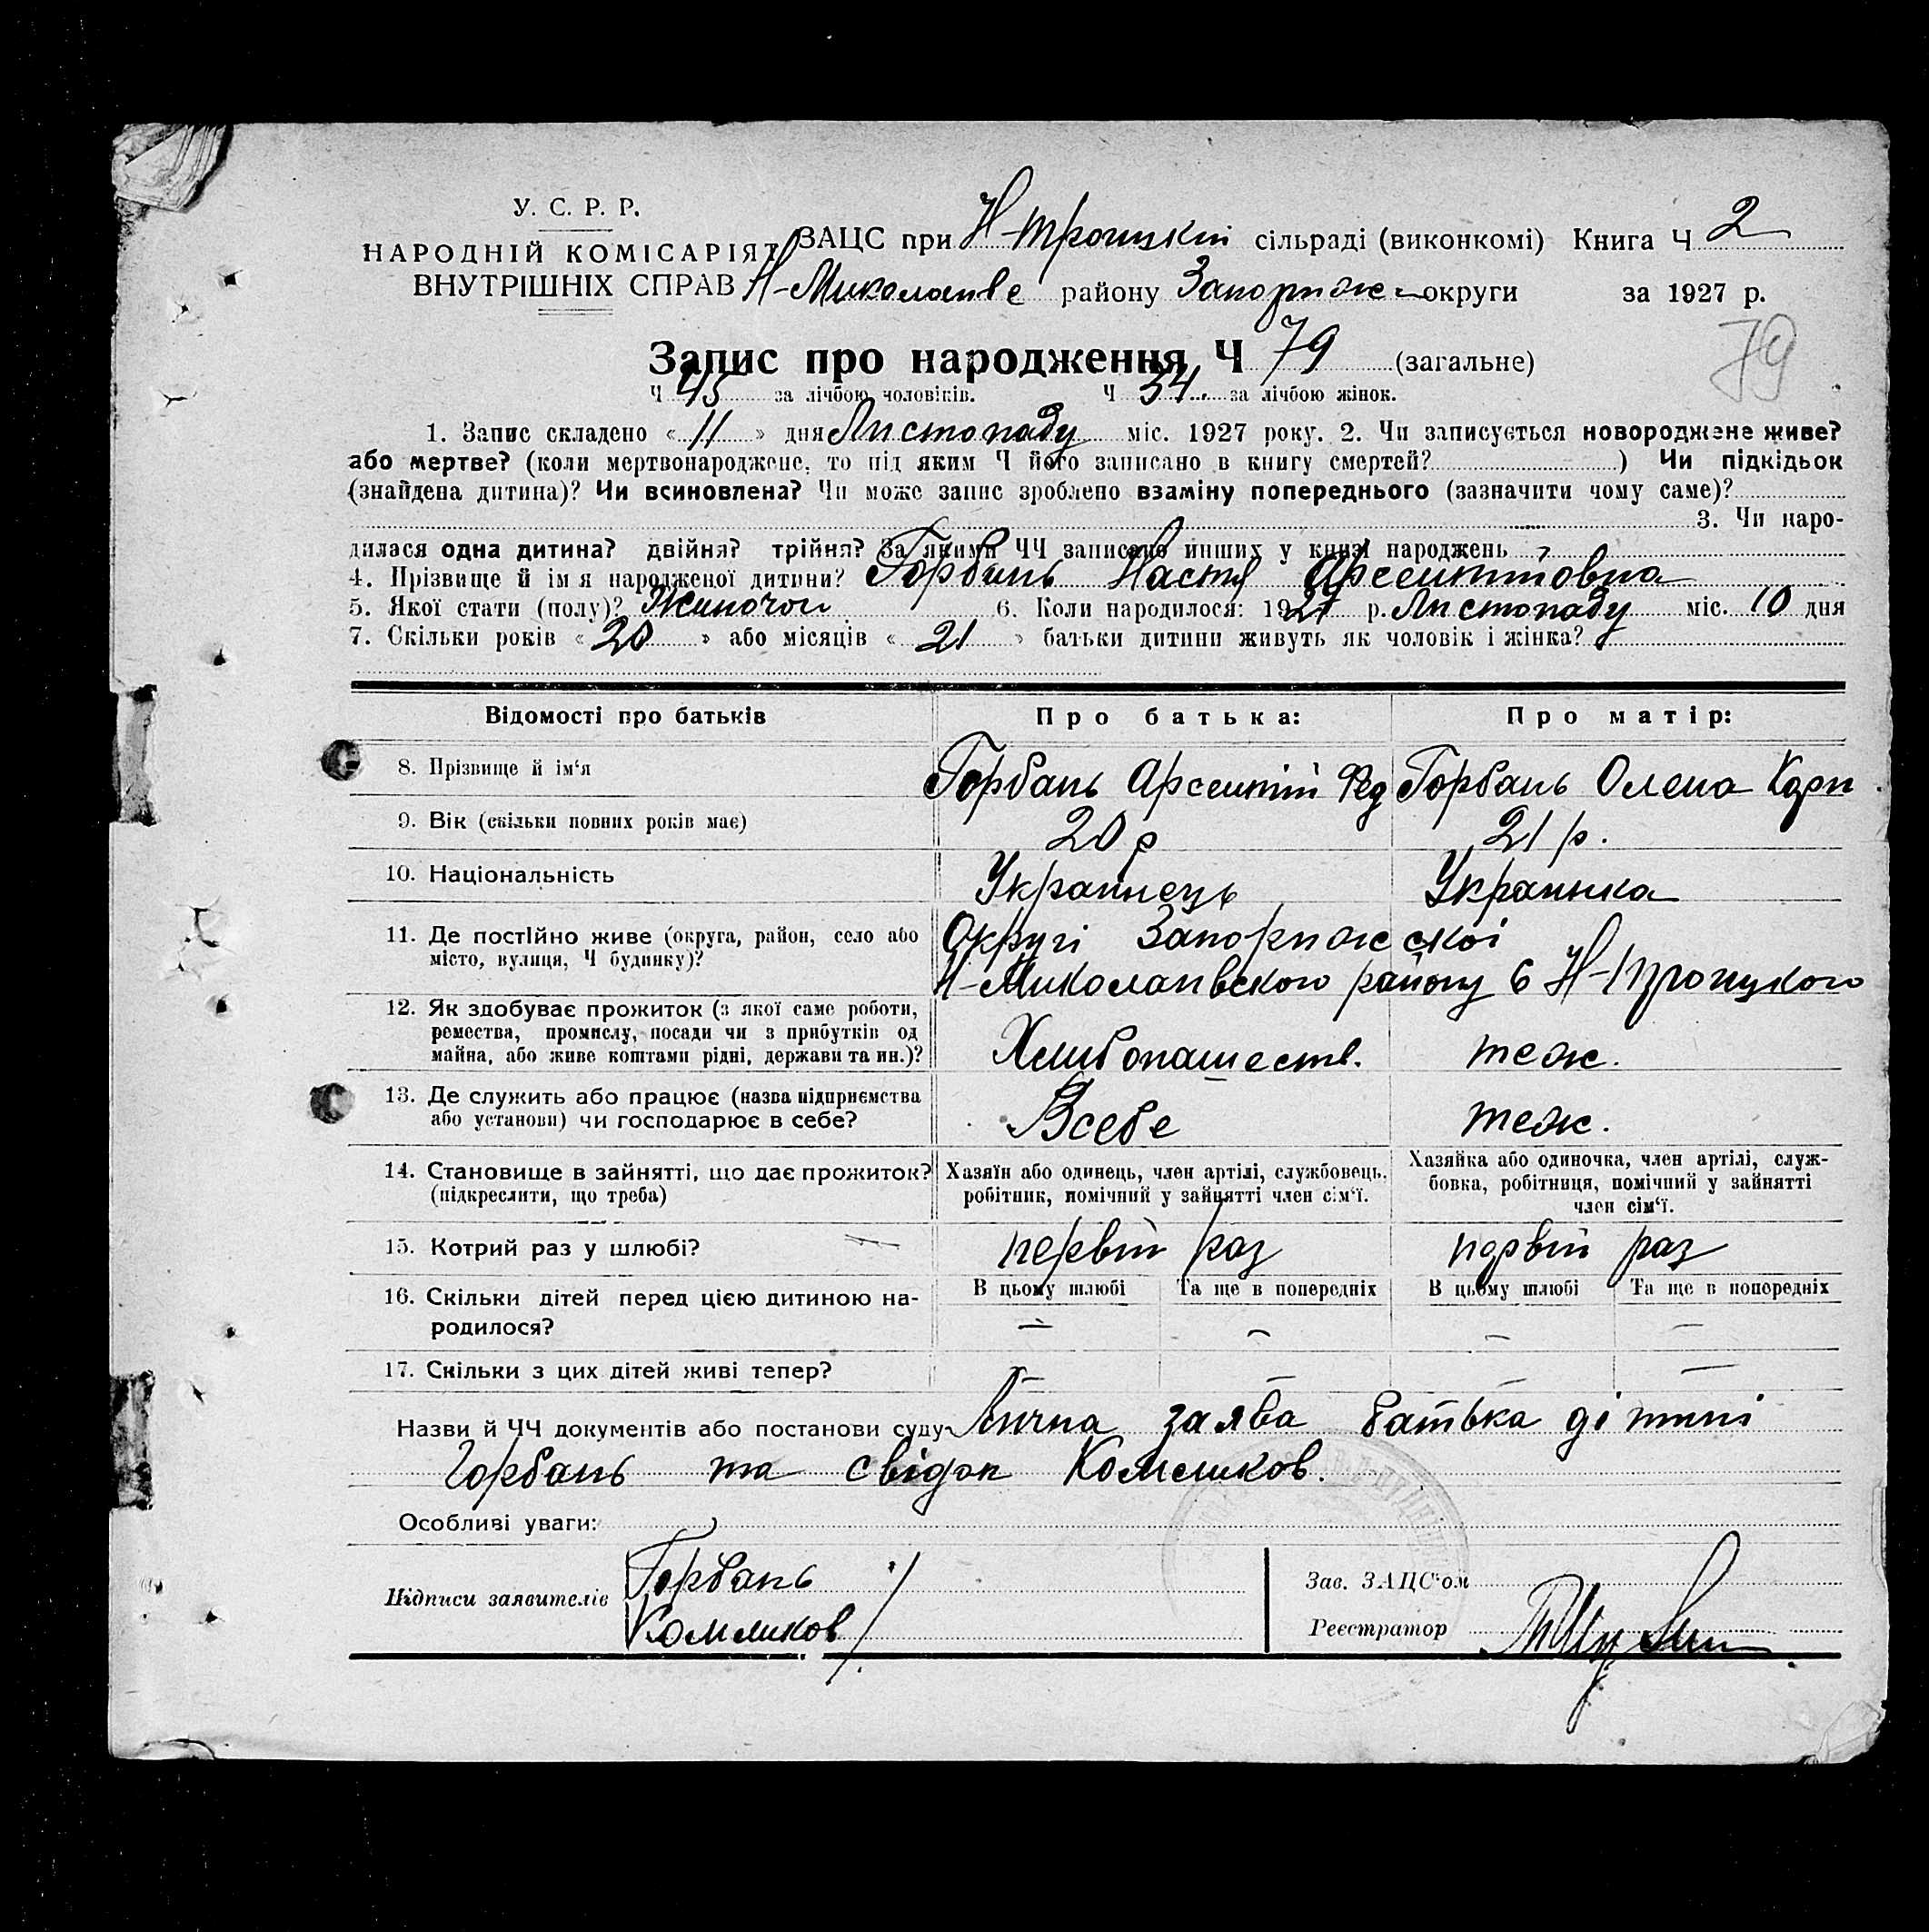 У. С. Р. Р.
НАРОДНІЙ КОМІСАРІЯТ
ВНУТРІШНІХ СПРАВ
ЗАЦС при Н-Троицкій сільраді (виконкомі) Книга Ч 2
Н-Миколаивс району Запориж округи за 1927 р.
Запис про народження Ч 79 (загальне)
79
Ч 45 за лічбою чоловіків. Ч 34 за лічбою жінок.
1. Запис складено « 11 » дня Листопаду міс. 1927 року. 2. Чи записується новороджене живе?
або мертве? (коли мертвонароджене, то під яким Ч його записано в книгу смертей? ) Чи підкідьок
(знайдена дитина)? Чи всиновлена? Чи може запис зроблено взаміну попереднього (зазначити чому саме)?
3. Чи наро-
дилася одна дитина? двійня? трійня? За якими ЧЧ записано инших у книзі народжень
4. Прізвище й імя народженої дитини? Горбань Настя Арсентіовна
5. Якої стати (полу)? Жиночои 6. Коли народилося: 1927 р. Листопаду міс. 10 дня
7. Скільки років « 20 » або місяців « 21 » батьки дитини живуть як чоловік і жінка?
Відомості про батьків Про батька: Про матір:
8. Прізвище й ім‘я Горбань Арсентій Фед Горбань Олена Карп
9. Вік (скільки повних років має) 20 р 21 р.
10. Національність Украинець Украинка
11. Де постійно живе (округа, район, село або місто, вулиця, Ч будинку)? Округі Запорижскоі
Н-Миколаивского району с Н-Троицкого
12. Як здобуває прожиток (з якої саме роботи,
ремества, промислу, посади чи з прибутків од
майна, або живе коштами рідні, держави та ин.)? Хлибопашеств. теж.
13. Де служить або працює (назва підприємства
або установи) чи господарює в себе? Всебе теж.
14. Становище в зайнятті, що дає прожиток?
(підкреслити, що треба)
Хазяїн або одинець, член артілі, службовець,
робітник, помічний у зайнятті член сім‘ї.
Хазяйка або одиночка, член артілі, служ-
бовка, робітниця, помічний у зайнятті
член сім‘ї.
15. Котрий раз у шлюбі? первій раз первій раз
16. Скільки дітей перед цією дитиною на-
родилося?
В цьому шлюбі Та ще в попередніх В цьому шлюбі Та ще в попередніх
— — — —
17. Скільки з цих дітей живі тепер? — — — —
Назви й ЧЧ документів або постанови суду Лична заява батька дітині
Горбань та свідок
Особливі уваги:
Підписи заявителів Горбань
Зав. ЗАЦС‘ом
Реєстратор